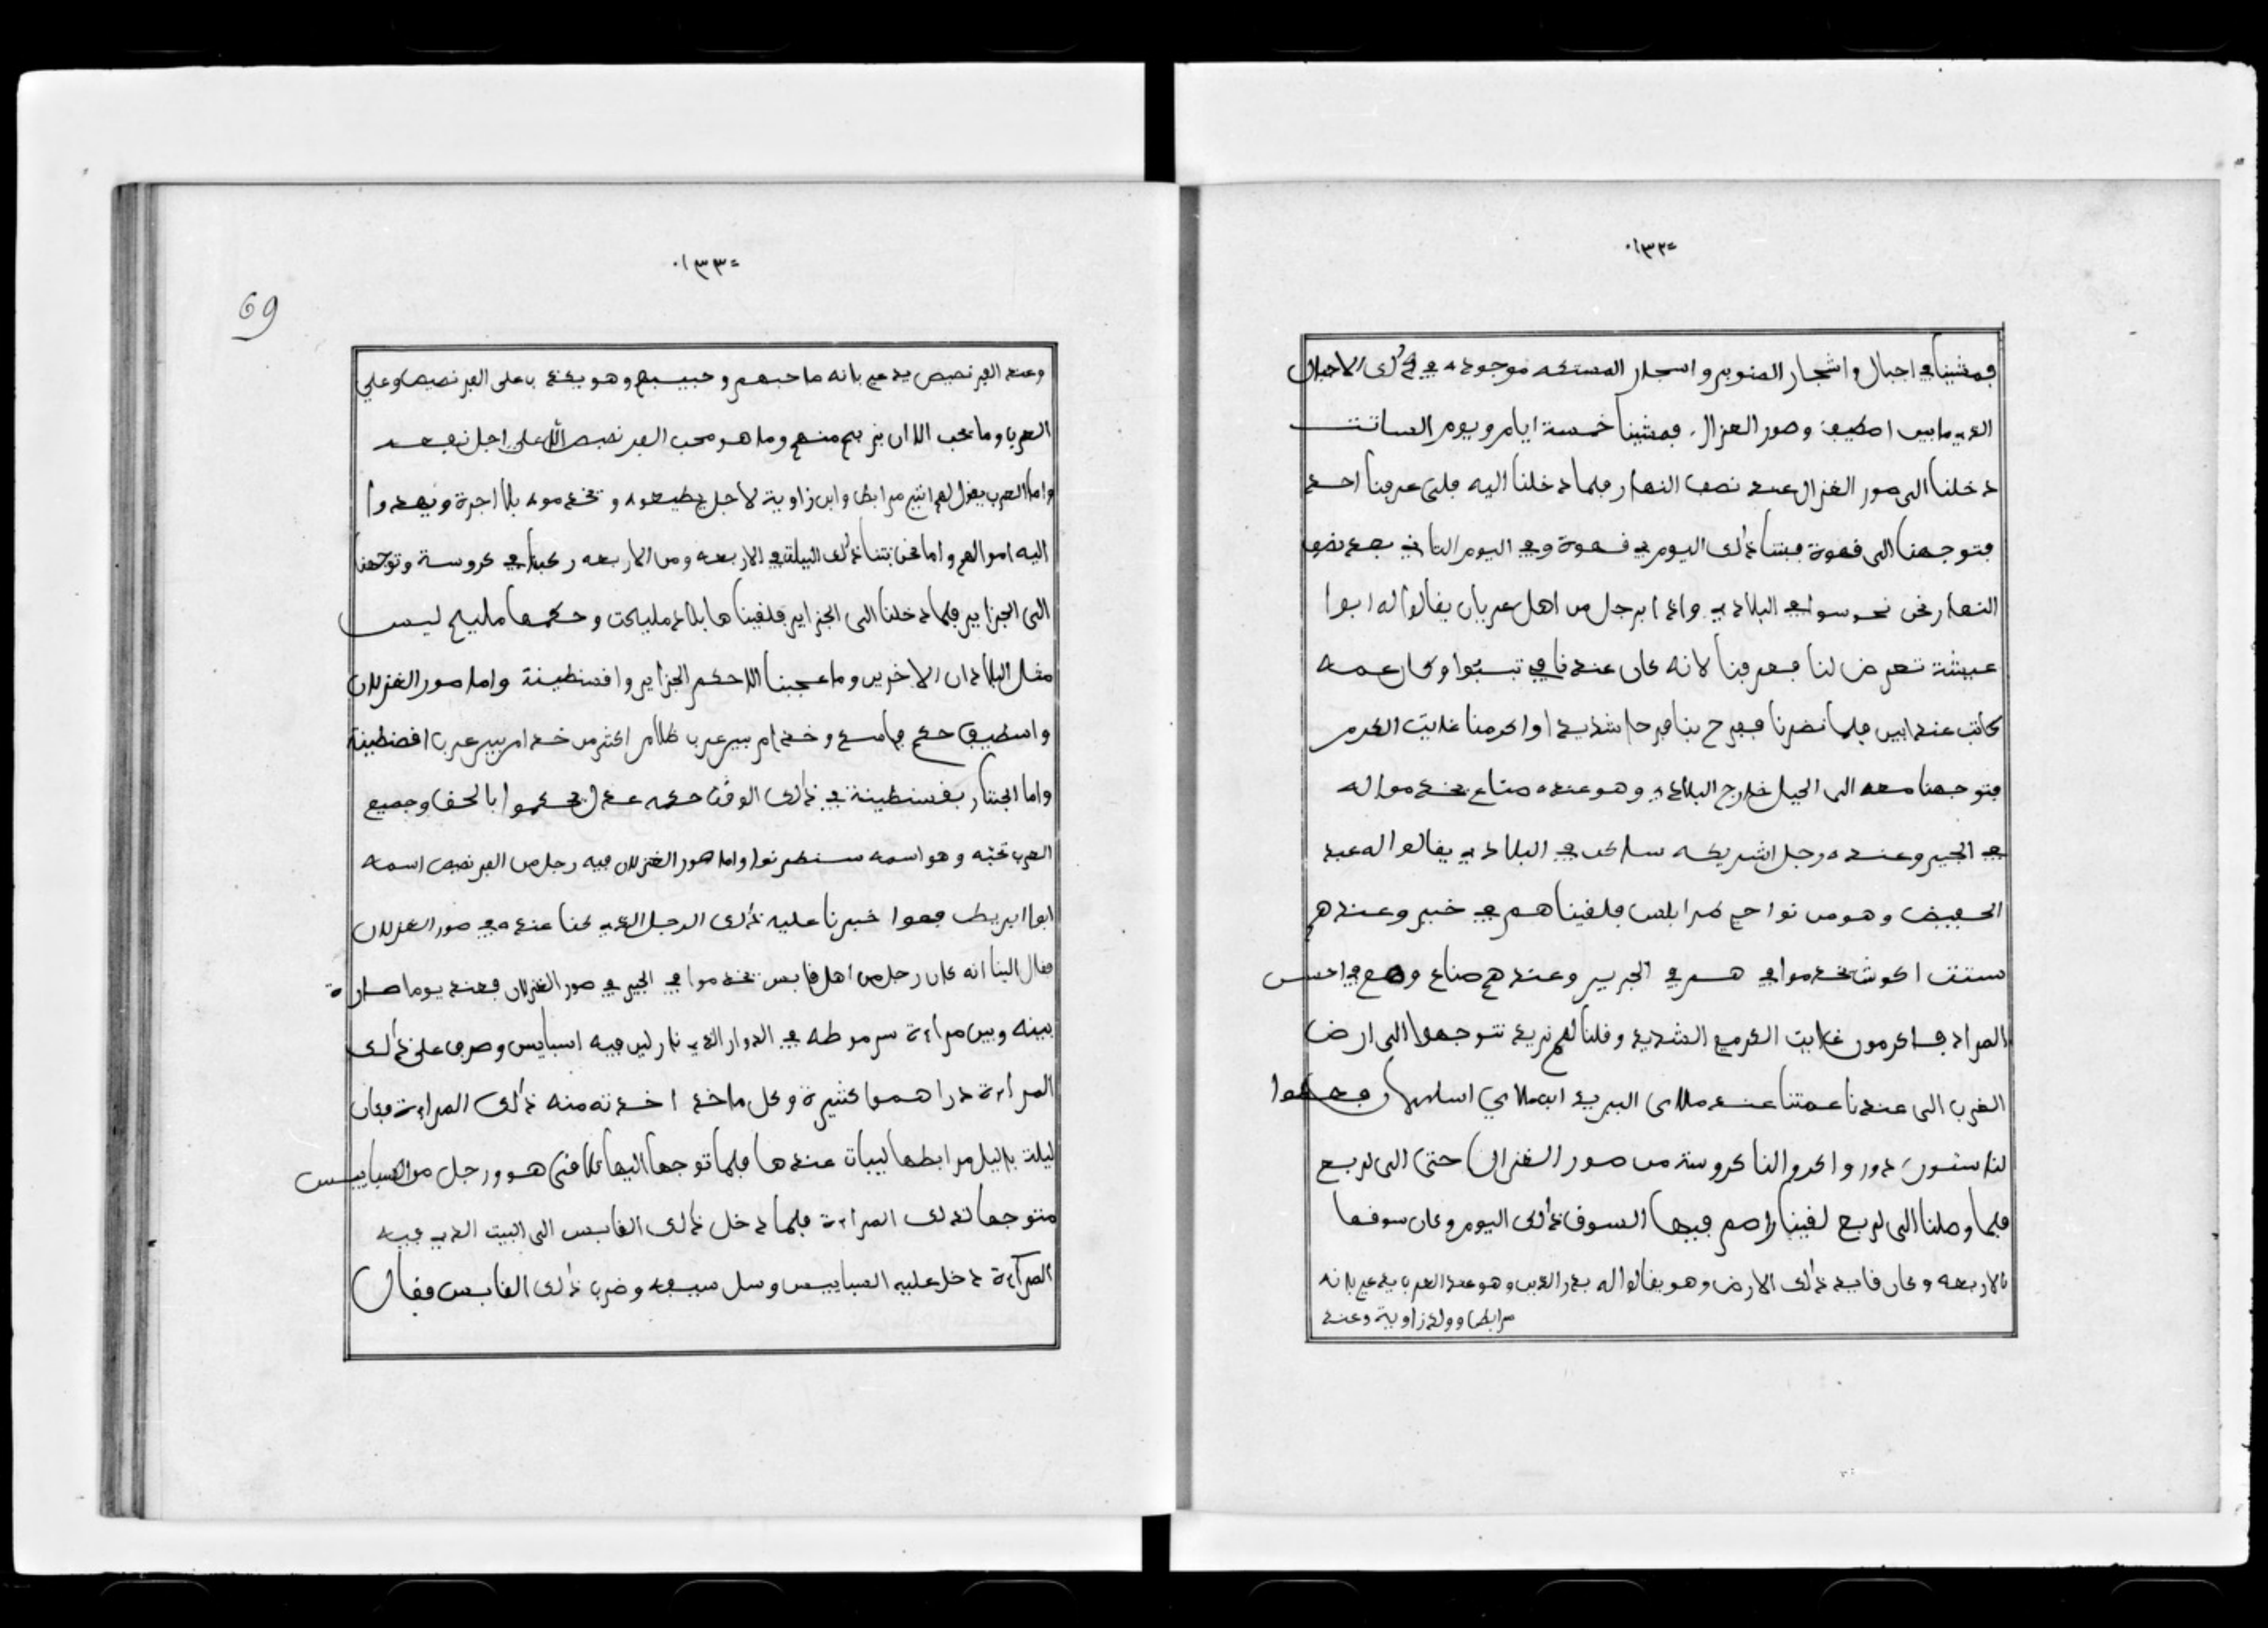 ١٣٢
فمشينا في اجبال واشجار الصنوبر واسجار المستكه موجوده في ذلك الاجبال
الذي مابين اصطيف وصور الغزال فمشينا خمسة ايام ويوم السادس
دخلنا الى صور الغزال عند نصف النهار فلما دخلنا اليه فلن عرفنا احد
فتوجهنا الى قهوة فبتنا ذلك اليوم في قهوة وفي اليوم الثاني بعد نصف
النهار نحن نحوسوا في البلاد واذا برجل من اهل عريان يقالوا له ابوا
عيشة تعرض لنا فعرفنا لانه كان عندنا في تبسوا وكان عمه
كاتب عند ابي فلما نضرنا ففرح بنا فرحا شديدا واكرمنا غايت الكرم
فتوجهنا معه الى الجبل خارج البلاد وهو عنده صناع يخدموا له
في الجير وعنده رجل اشريكه ساكن في البلاد يقالوا له عبد
الحفيض وهو من نواحي طرابلس فلقيناهم في خير وعندهم
ستت اكوش يخدموا في هم في الجير وعندهم صناع وهم في احسن
المراد فاكرمون غايت الكرم الشديد وقلنا لهم نريد نتوجهوا الى ارض
الغرب الى عندنا عمتنا عند
لنا ستون دورو واكروا لنا كروسة من صور الغزال حتى الى لربع
فلما وصلنا الى لربع لقينا راهم فيها السوق ذلك اليوم وكان سوقها
بالاربعه وكان قايد ذلك الارض وهو يقالوا له بدر الدين وهو عند العرب يدعي بانه
مرابطا وولد زاوية وعند
١٣٣
69
وعند الفرنصيص يدعي بانه صاحبهم وحبيبهم وهو يكذب على الفرنصيص وعلى
العرب وما يحب الا ان يربح منهم وما هو محب الفرنصيص الا على اجل نفعه
واما العرب يقول لهم انني مرابط وابن زاوية لاجل يطيعوه ويخدموه بلا اجرة ويهدوا
اليه اموالهم واما نحن بتنا ذلك الليلة في الاربعه ومن الاربعه ركبنا في كروسة وتوجهنا
الى الجزاير فلما دخلنا الى الجزاير فلقيناها بلاد مليحت وحكمها مليح ليس
مثل البلادان الاخرين وما عجبنا الا حكم الجزاير واقسنطينة واما صور الغزلان
واسطيف حكم فاسد وخدام بيرعرب ظلام اكثر من خدام بيرعرب اقصنطينة
واما الجننار بقسنطينة في ذلك الوقت حكمه عدل يحكموا بالحق وجميع
العرب تحبه وهو اسمه واما صور الغزلان فيه رجل من الفرنصيص اسمه
خبرنا عليه ذلك الرجل الذي كنا عنده في صور الغزلان
فقال الينا انه كان رجل من اهل قابس يخدموا في الجير في صور الغزلان فعند يوما صارة
بينه وبين مراءة سرموطه في الدوار الذي فيه اسبايس وصرف على ذلك
المراءة دراهموا كثيرة وكل ما خدم اخدته منه ذلك المراءة فكان
ليلة باليل مرابطها ليبات عندها فلما توجها اليها تلاقى هو ورجل من السبايس
متوجها لذلك المراءة فلما دخل ذلك القابسي الى البيت الذي فيه
المرآءة دخل عليه السبايس وسل سيفه وضرب ذلك القابسي فقال